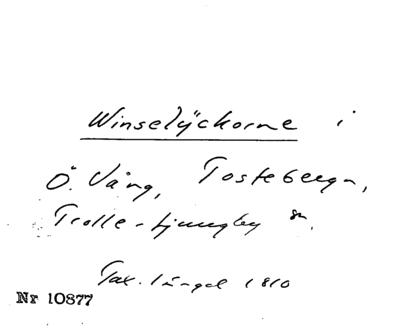 Winselyckorne i
Ö. Vång, Tosteberga,
Trolle-Ljungby sn.
Tax. längd 1810
Nr 10877